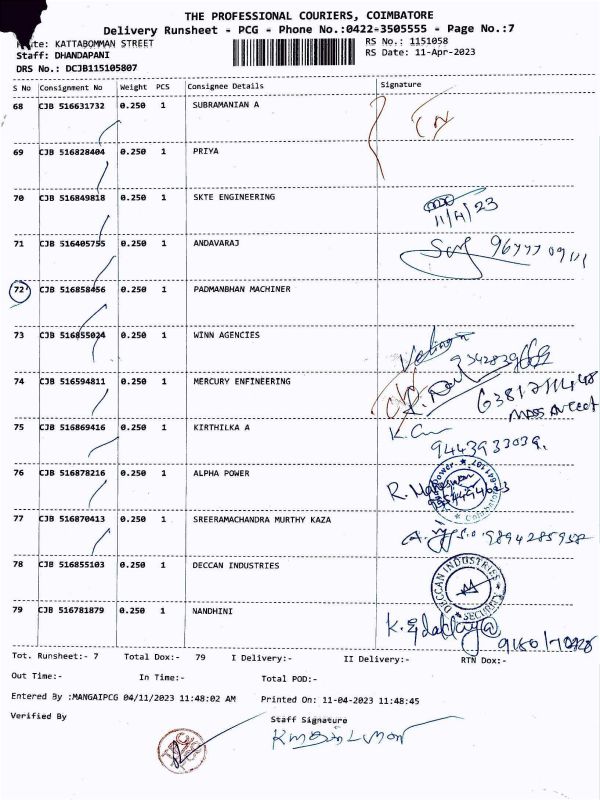 THE PROFESSIONAL COURIERS, COIMBATORE
Delivery Runsheet - PCG - Phone No.:0422-3505555 - Page No.:7
KATTABOMMAN STREET
RS No.: 1151058
Staff: DHANDAPANI
RS Date: 11-Apr-2023
DRS No.: DCJB115105807
S No Consignment No Weight PCS Consignee Details Signature
68 CJB 516631732 0.250 1 SUBRAMANIAN A
69 CJB 516828404 0.250 1 PRIYA
70 CJB 516849818 0.250 1 SKTE ENGINEERING
11/4/23
71 CJB 516405755 0.250 1 ANDAVARAJ
72 CJB 516858456 0.250 1 PADMANBHAN MACHINER
73 CJB 516855024 0.250 1 WINN AGENCIES
74 CJB 516594811 0.250 1 MERCURY ENFINEERING
75 CJB 516869416 0.250 1 KIRTHILKA A
9443933039.
76 CJB 516878216 0.250 1 ALPHA POWER
77 CJB 516870413 0.250 1 SREERAMACHANDRA MURTHY KAZA
78 CJB 516855103 0.250 1 DECCAN INDUSTRIES
DECCAN INDUSTRIES
SECURITY
79 CJB 516781879 0.250 1 NANDHINI
Tot. Runsheet:- 7 Total Dox:- 79 I Delivery:- II Delivery:- RTN Dox:-
Out Time:- In Time:- Total POD:-
Entered By :MANGAIPCG 04/11/2023 11:48:02 AM Printed On: 11-04-2023 11:48:45
Verified By Staff Signature